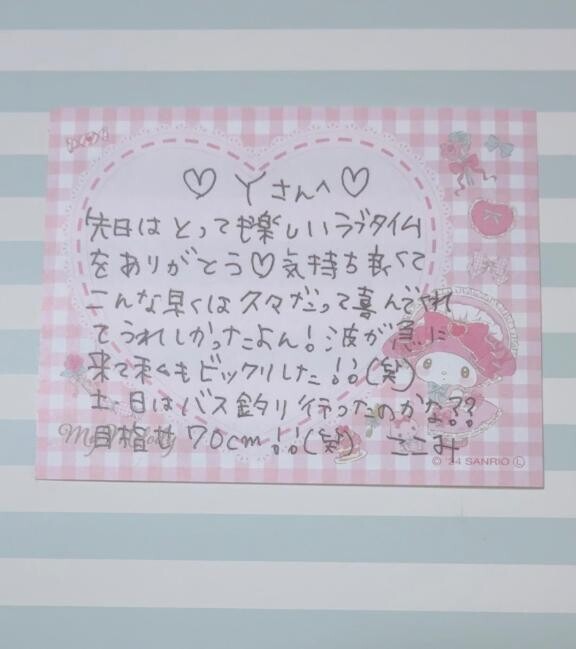 ♡ Yさんへ ♡
先日はとっても楽しいラブタイム
をありがとう♡気持ち良くて
こんな早くは久々だって喜んでくれ
てうれしかったよん!波が急に
来て私もビックリした!!(笑)
土・日はバス釣り行ったのかな??
目指せ70cm!!(笑) ここみ
My Melody
© '24 SANRIO Ⓛ